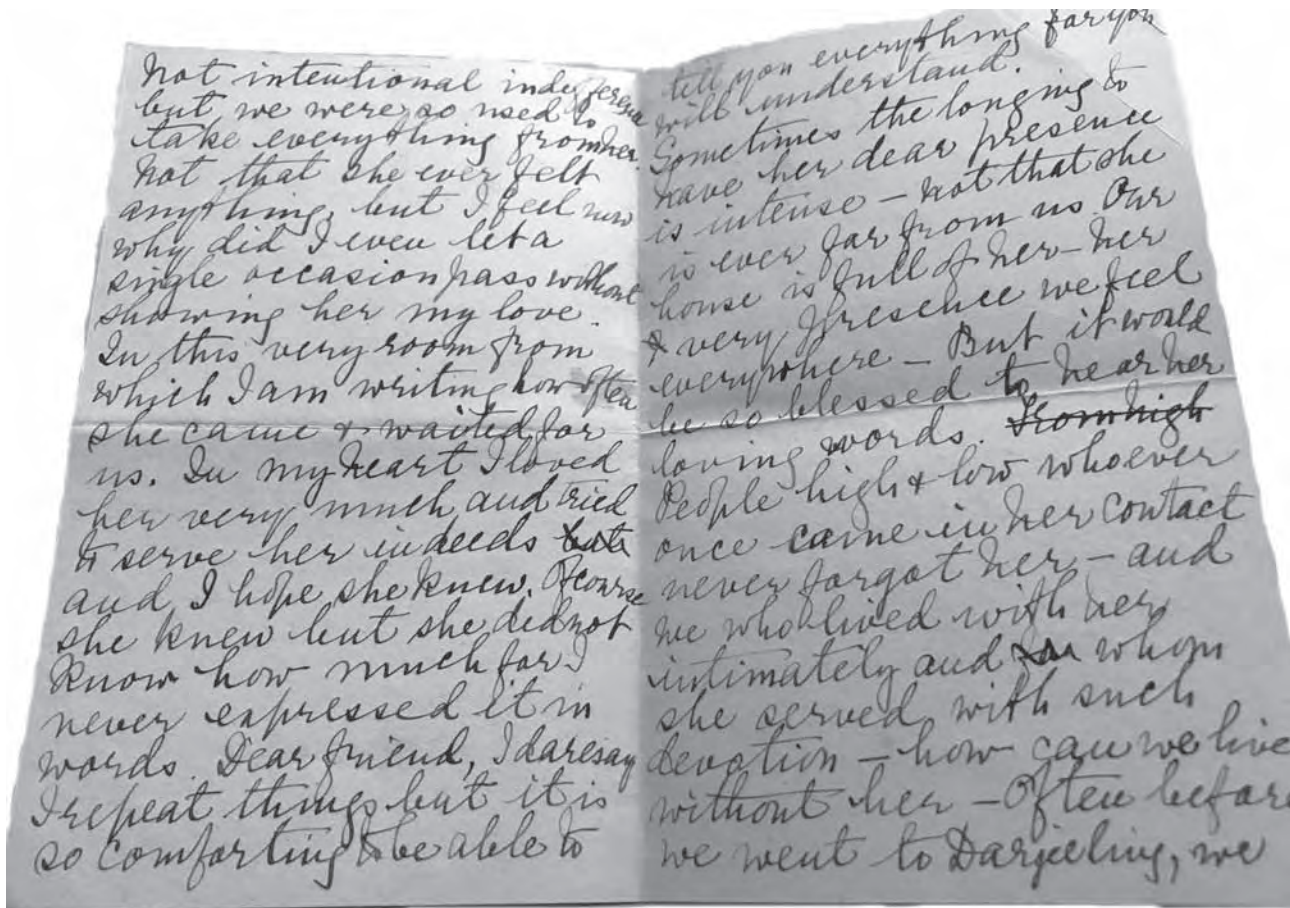 Not intentional indifference
but we were so used to
take everything from her.
Not that she ever felt
anything, but I feel now
why did I even let a
single occasion pass without
showing her my love.
In this very room from
which I am writing how often
she came & waited for
us. In my heart I loved
her very much and tried
to serve her in deeds but
and I hope she knew. Of course
she knew but she did not
know how much for I
never expressed it in
words. Dear friend, I daresay
I repeat things but it is
so comforting to be able to
tell you everything for you
will understand.
Sometimes the longing to
have her dear presence
is intense – not that she
is ever far from us Our
house is full of her – her
& very presence we feel
everywhere – But it would
be so blessed to hear her
loving words. From high
People high & low whoever
once came in her contact
never forgot her – and
we who lived with her
intimately and whom
she served with such
devotion – how can we live
without her – Often before
we went to Darjeeling, we